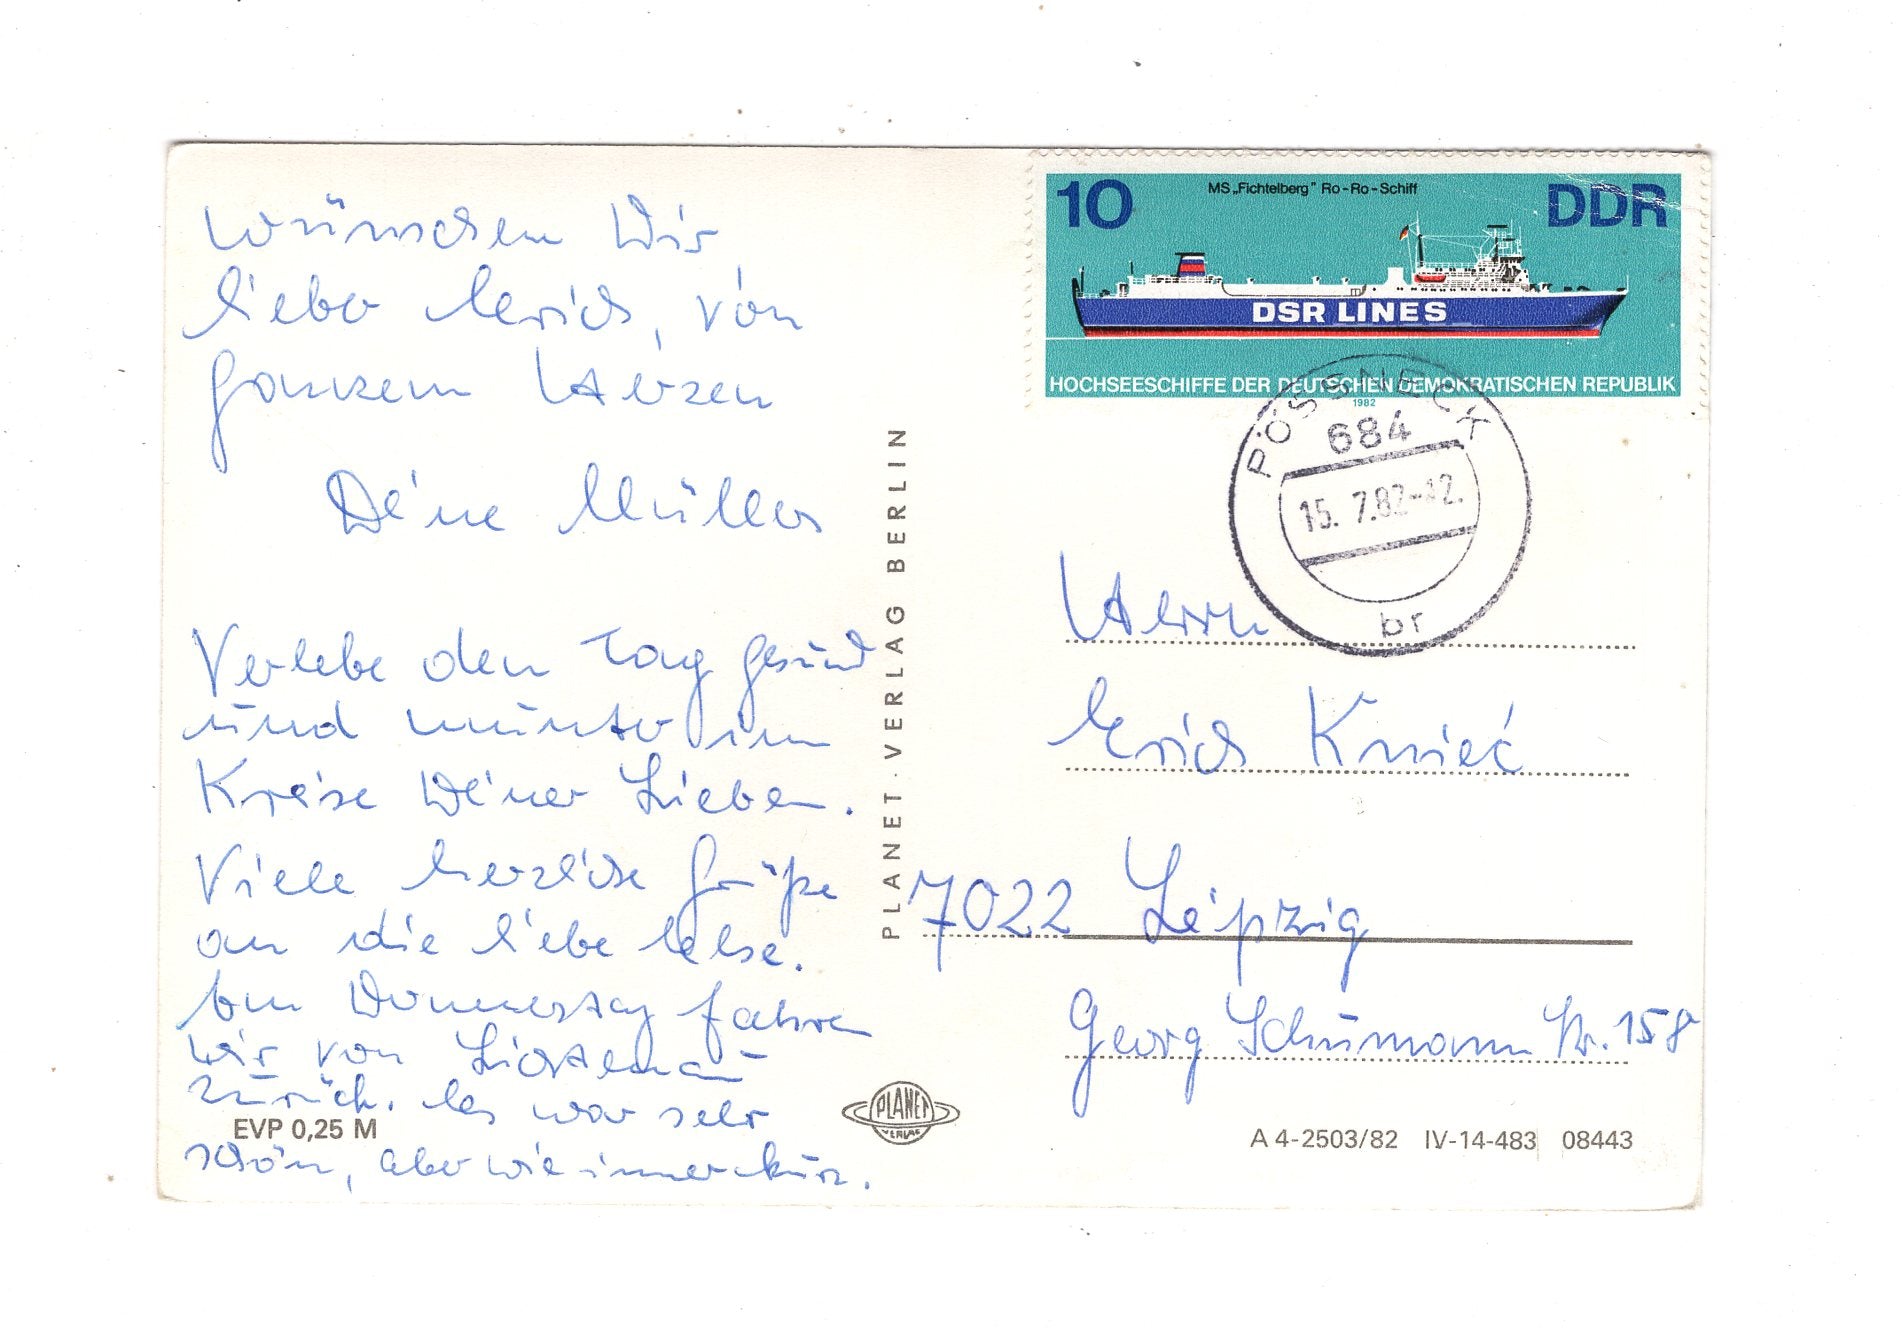 wünschen Wir
lieber Erich, von
ganzem Herzen
Deine Müllers
Verlebe den Tag gesund
und munter im
Kreise Deiner Lieben.
Viele herzliche Grüße
an die liebe Else.
Am Donnerstag fahren
wir von Lichtenau
zurück. Es war sehr
schön, aber wie immer kurz.
EVP 0,25 M
PLANET-VERLAG BERLIN
PLANET
VERLAG
10
MS „Fichtelberg" Ro-Ro-Schiff
DDR
DSR LINES
HOCHSEESCHIFFE DER DEUTSCHEN DEMOKRATISCHEN REPUBLIK
1982
PÖSSNECK
684
15. 7.82-12.
br
Herrn
Erich Knieć
7022 Leipzig
Georg Schumann Str. 158
A 4-2503/82 IV-14-483 08443